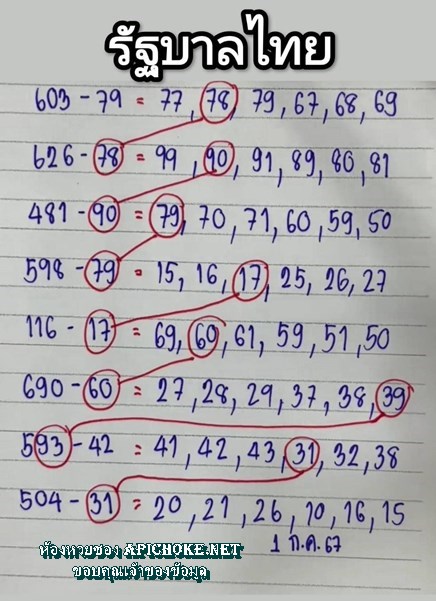 รัฐบาลไทย
603 - 79 = 77, 78, 79, 67, 68, 69
626 - 78 = 99, 90, 91, 89, 80, 81
481 - 90 = 79, 70, 71, 60, 59, 50
598 - 79 = 15, 16, 17, 25, 26, 27
116 - 17 = 69, 60, 61, 59, 51, 50
690 - 60 = 27, 28, 29, 37, 38, 39
593 - 42 = 41, 42, 43, 31, 32, 38
504 - 31 = 20, 21, 26, 10, 16, 15
1 ก.ค. 67
ห้องหวยซอง APICHOKE.NET
ขอบคุณเจ้าของข้อมูล